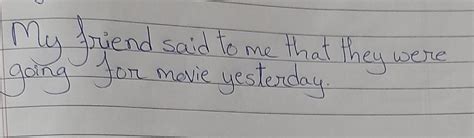 My friend said to me that they were
going for movie yesterday.